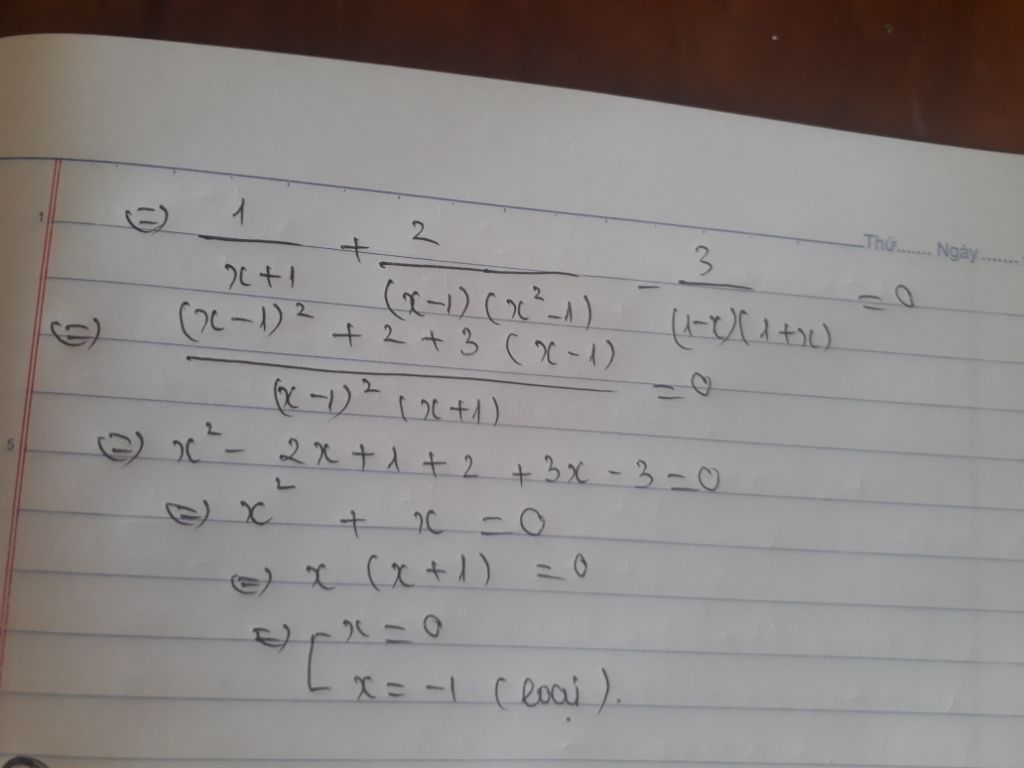 Thứ....... Ngày.......
1
⇔ 1/(x+1) + 2/((x-1)(x²-1)) - 3/((1-x)(1+x)) = 0
⇔ ((x-1)² + 2 + 3(x-1))/((x-1)²(x+1)) = 0
5
⇔ x² - 2x + 1 + 2 + 3x - 3 = 0
⇔ x² + x = 0
⇔ x (x+1) = 0
⇔ [ x = 0
x = -1 (loại).